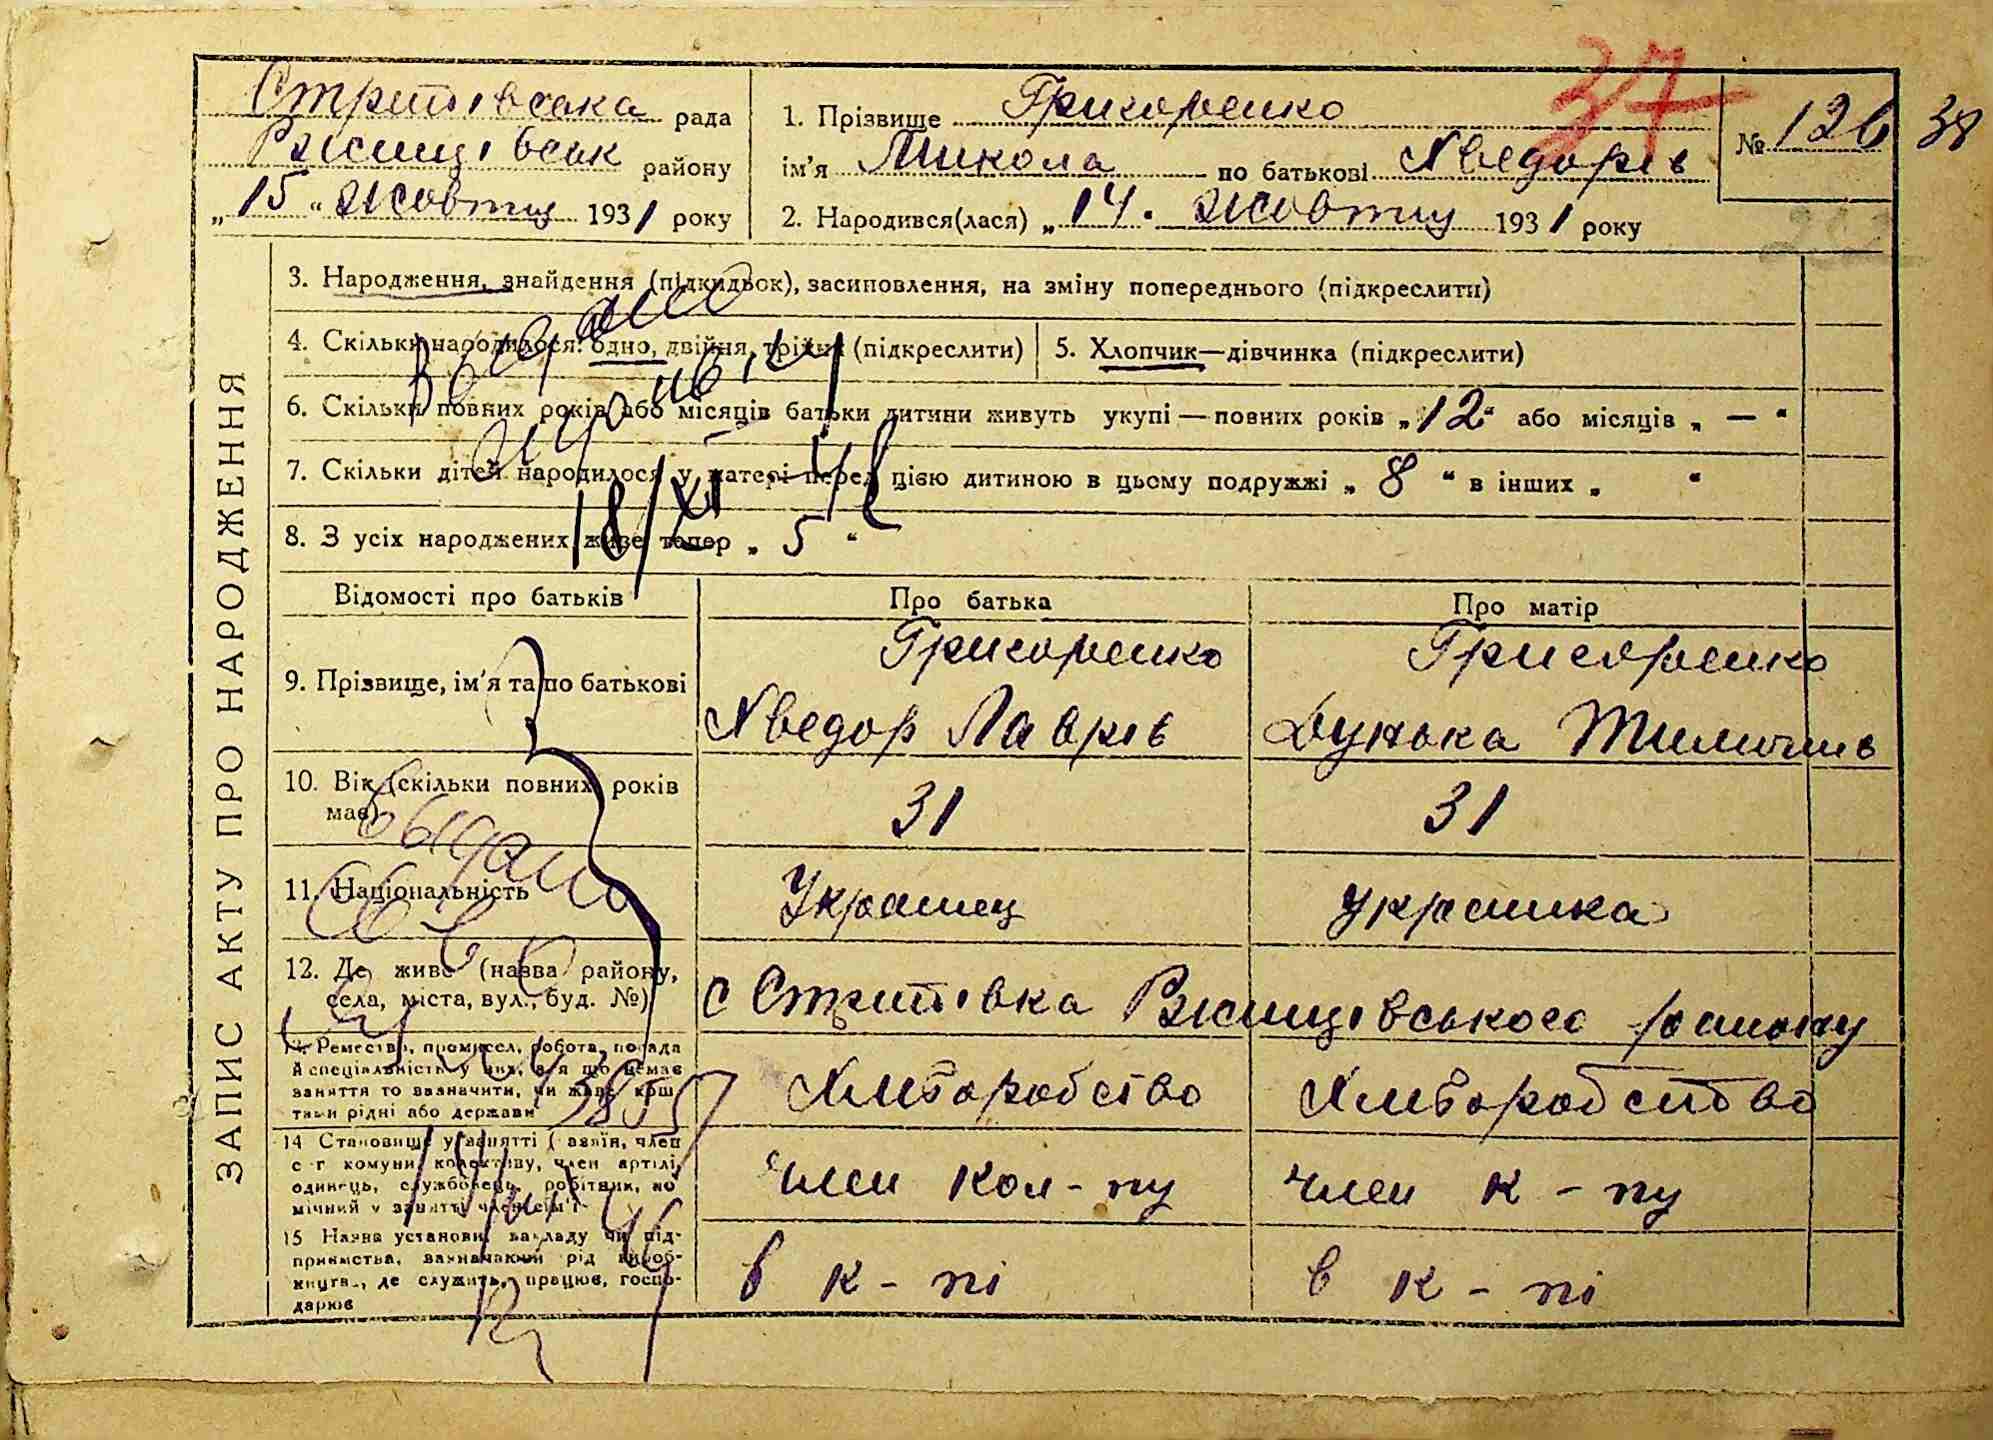 Стритівська рада
Ржищівськ району
„15“ жовтня 1931 року
1. Прізвище Григоренко
ім'я Микола по батькові Хведорів
2. Народився(лася) „14. жовтня 1931 року
№ 126 38
37
ЗАПИС АКТУ ПРО НАРОДЖЕННЯ
3. Народження, знайдення (підкидьок), засиновлення, на зміну попереднього (підкреслити)
4. Скільки народилося: одно, двійня, трійня (підкреслити)
5. Хлопчик—дівчинка (підкреслити)
6. Скільки повних років або місяців батьки дитини живуть укупі—повних років „12“ або місяців „ — “
7. Скільки дітей народилося у матері перед цією дитиною в цьому подружжі „ 8 “ в інших „ “
8. З усіх народжених живе тепер „ 5 “
18/XI
Відомості про батьків Про батька Про матір
9. Прізвище, ім'я та по батькові
Григоренко
Хведор Лаврів
Григоренко
Дунька Тимошів
10. Вік (скільки повних років має)
31
31
11. Національність
Українец
Українка
12. Де живе (назва району,
села, міста, вул., буд. №)
с Стритівка Ржищівського району
13. Ремество, промисел, робота, посада
й спеціальність у них, а я що немає
заняття то зазначити, чи живе кош
тами рідні або держави
Хліборобство
Хліборобство
14 Становище у занятті ( азяїн, член
с-г комуни колективу, член артілі,
одинець, службовець, робітник, по
мічний у занятті член сім'ї
член кол-ву
член к-ву
15 Назва установи, закладу чи під-
приємства, зазначаючи рід вироб-
ництв., де служить, працює, госпо-
дарює
в к-ві
в к-ві